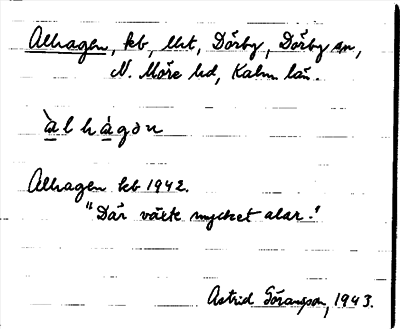 Alhagen, kb, lht, Dörby, Dörby sn,
N. Möre hd, Kalm. län.
àlhágən
Alhagen kb 1942.
"Där växte mycket alar."
Astrid Göransson, 1943.